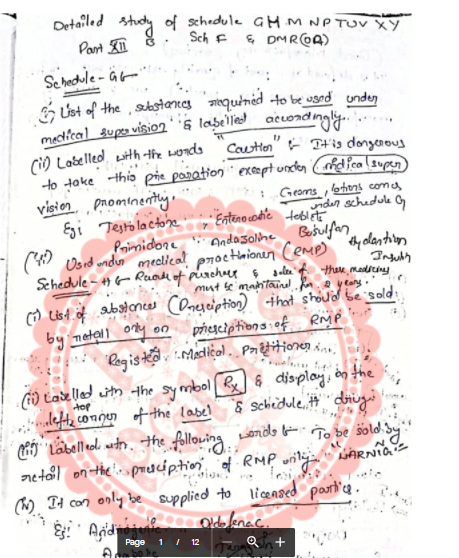 Detailed study of schedule G H M N P T U V X Y
Part XII B Sch F & DMR(OA)
Schedule - G
(i) List of the substances required to be used under
medical supervision & labelled accordingly.
(ii) Labelled with the words "Caution" :- It is dangerous
to take this preparation except under medical super
vision prominently. : Creams, lotions comes
under schedule G
Eg: Testolactone, tablets
Primidone Busulfan
(iii) Used under medical practitioner (RMP) Insulin
Schedule - H Records of purchase & sales of these medicines
must be maintained for 2 years.
(i) List of substances (Prescription) that should be sold
by retail only on prescriptions of RMP
Registered Medical Practitioner.
(ii) Labelled with the symbol Rx & display on the
left top corner of the label & schedule H drug
(iii) Labelled with the following words To be sold by
retail on the prescription of RMP only. "WARNING"
(iv) It can only be supplied to licensed parties.
Eg: Androgenic
Page 1 / 12